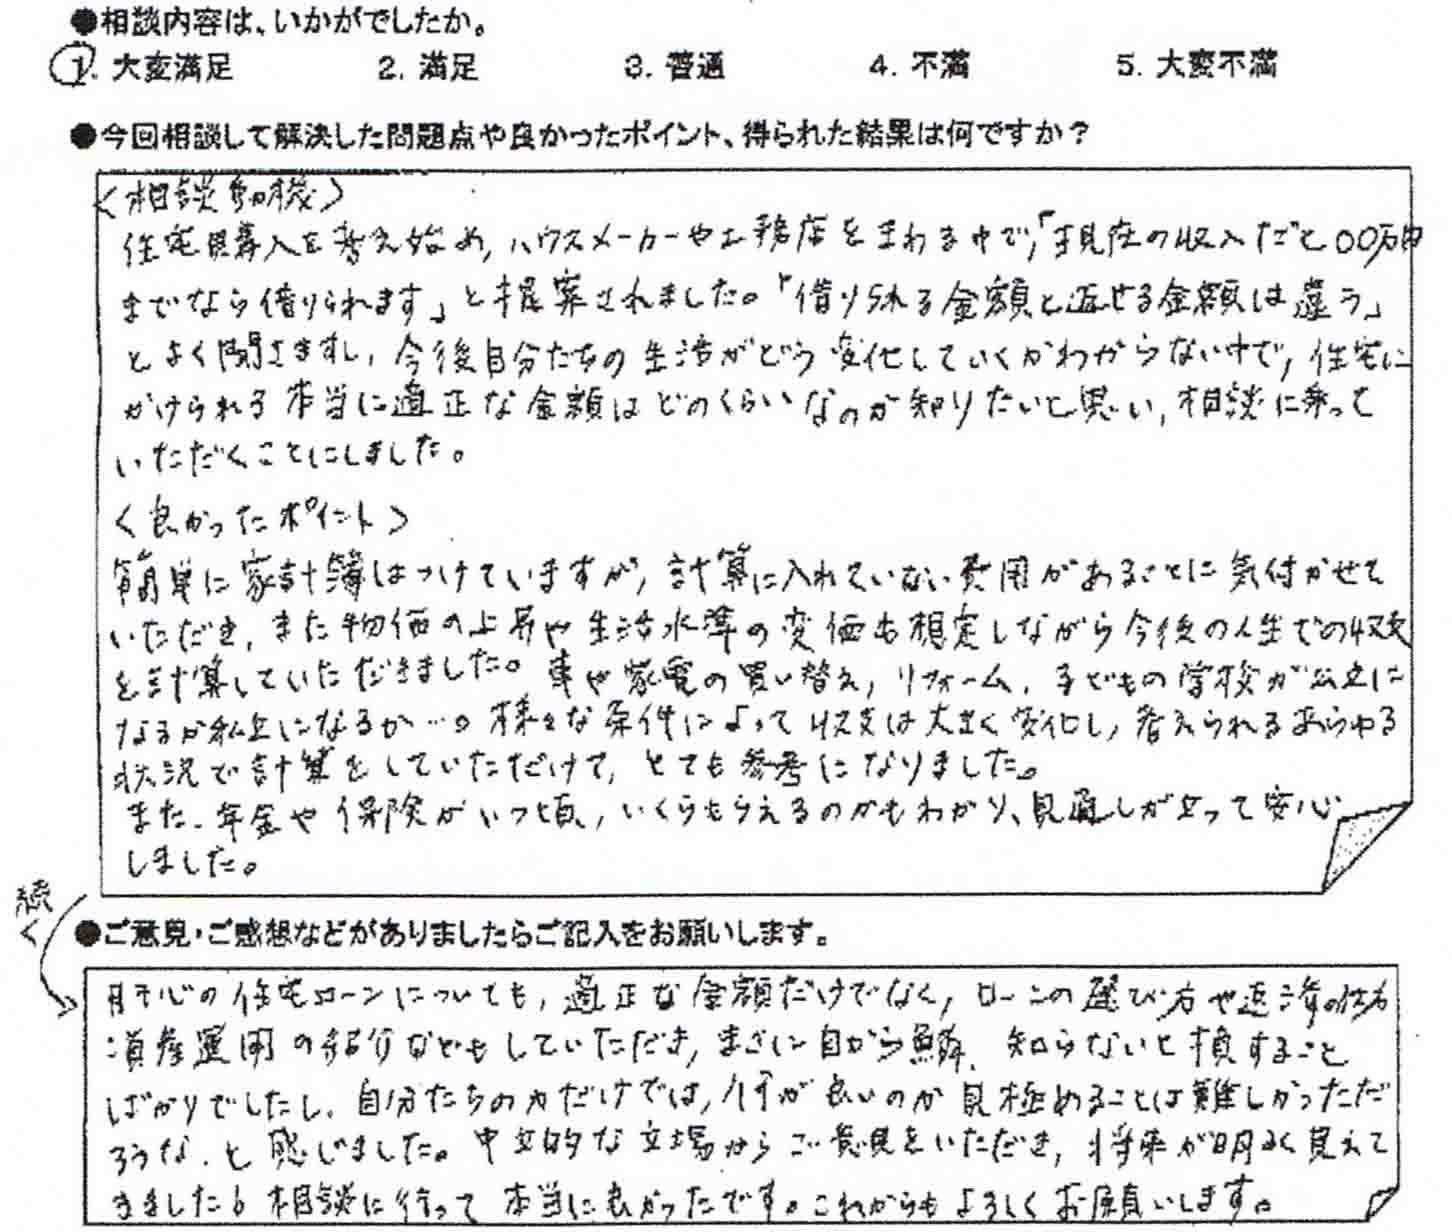 ●相談内容は、いかがでしたか。
1. 大変満足 2. 満足 3. 普通 4. 不満 5. 大変不満
●今回相談して解決した問題点や良かったポイント、得られた結果は何ですか？
<相談動機>
住宅購入を考え始め, ハウスメーカーや工務店をまわる中で,「現在の収入だと〇〇万円
までなら借りられます」と提案されました。「借りられる金額と返せる金額は違う」
とよく聞きますし, 今後自分たちの生活がどう変化していくかわからない中で, 住宅に
かけられる本当に適正な金額はどのくらいなのか知りたいと思い, 相談に乗って
いただくことにしました。
<良かったポイント>
簡単に家計簿はつけていますが, 計算に入れていない費用があることに気付かせて
いただき, また物価の上昇や生活水準の変価も想定しながら今後の人生での収支
を計算していただきました。車や家電の買い替え, リフォーム, 子どもの学校が公立に
なるか私立になるか…。様々な条件によって収支は大きく変化し, 考えられるあらゆる
状況で計算をしていただけて, とても参考になりました。
また, 年金や保険がいつ頃, いくらもらえるのかもわかり、見通しが立って安心
しました。
続く
●ご意見・ご感想などがありましたらご記入をお願いします。
肝心の住宅ローンについても, 適正な金額だけでなく, ローンの選び方や返済の仕方
資産運用の紹介などもしていただき, まさに目から鱗, 知らないと損すること
ばかりでしたし, 自分たちの力だけでは, 何が良いのか見極めることは難しかっただ
ろうな, と感じました。中立的な立場からご意見をいただき, 将来が明るく見えて
きました。相談に行って本当に良かったです。これからもよろしくお願いします。